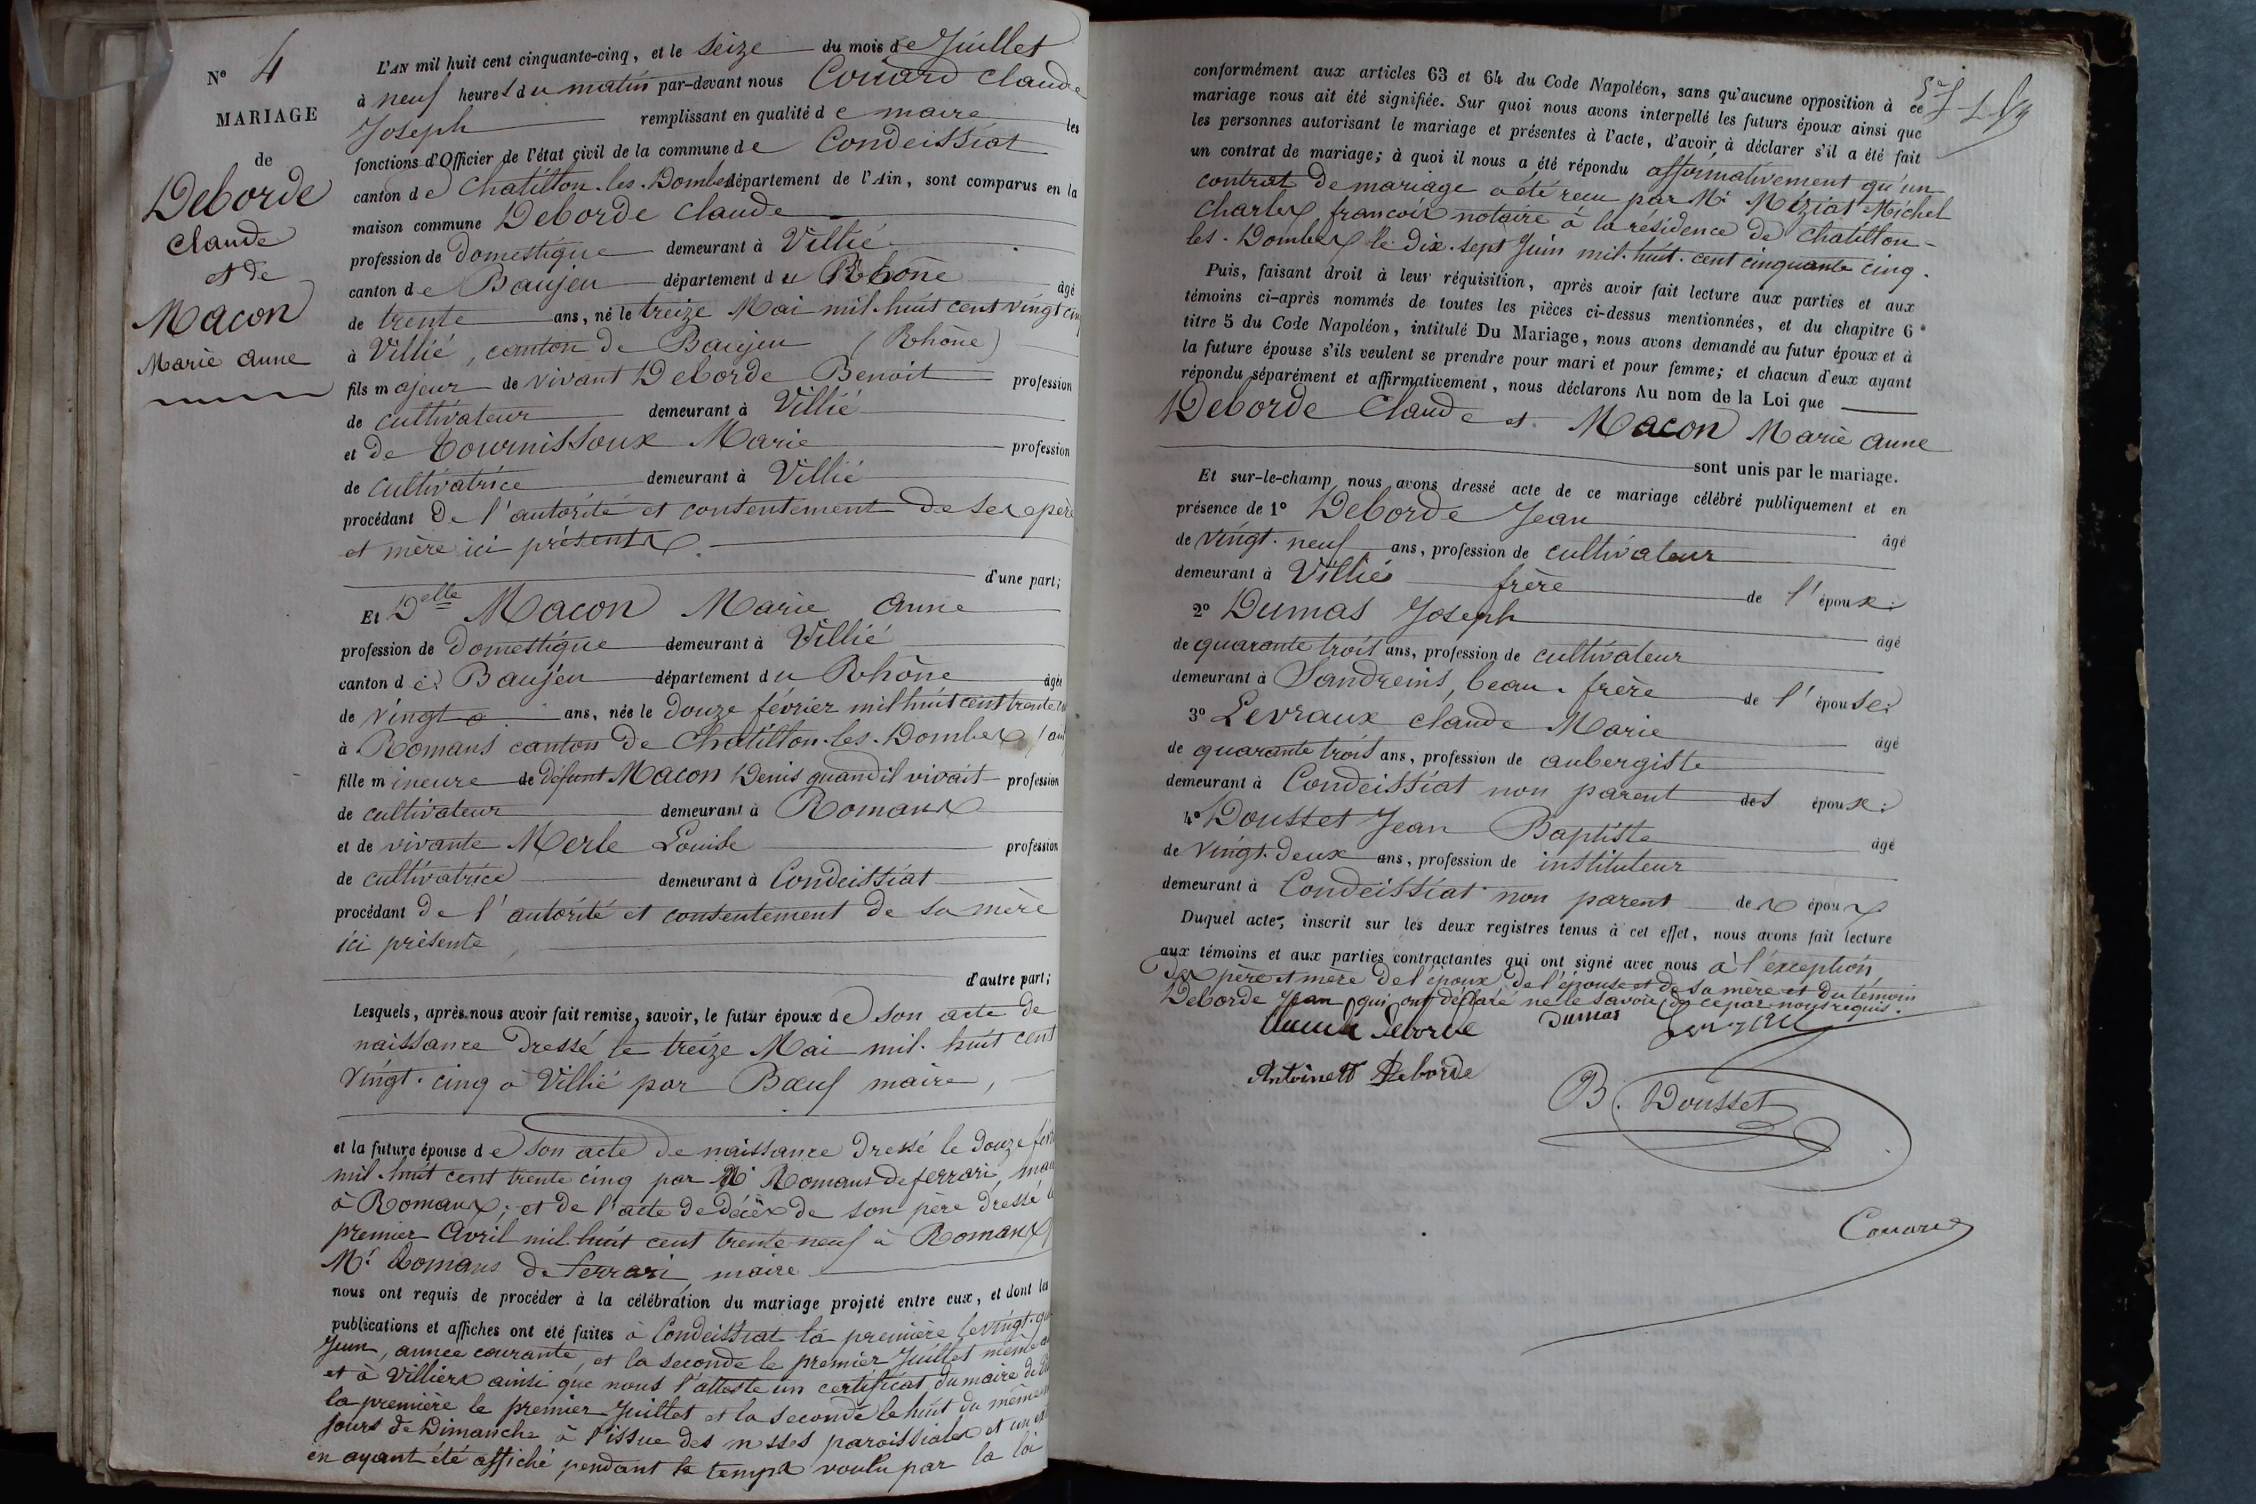 N° 4
MARIAGE
de
Deborde
Claude
et de
Macon
Marie anne
L'AN mil huit cent cinquante-cinq, et le seize du mois de Juillet
à neuf heures du matin par-devant nous Couard Claude
Joseph remplissant en qualité de maire les
fonctions d'Officier de l'état civil de la commune de Condeissiat
canton de Chatillon-les-Dombes département de l'Ain, sont comparus en la
maison commune Deborde Claude
profession de domestique demeurant à Villié
canton de Baujeu département du Rhône âgé
de trente ans, né le treize Mai mil huit cent vingt cinq
à Villié, canton de Baujeu (Rhône)
fils majeur de vivant Deborde Benoit profession
de cultivateur demeurant à Villié
et de Tournissoux Marie profession
de cultivatrice demeurant à Villié
procédant de l'autorité et consentement de ses père
et mère ici présents.
d'une part;
Et Delle Macon Marie Anne
profession de domestique demeurant à Villié
canton de Baujeu département du Rhône âgée
de vingt ans, née le douze février mil huit cent trente
à Romans canton de Chatillon-les-Dombes
fille mineure de défunt Macon Denis quand il vivait profession
de cultivateur demeurant à Romans
et de vivante Merle Louise profession
de cultivatrice demeurant à Condeissiat
procédant de l'autorité et consentement de sa mère
ici présente,
d'autre part;
Lesquels, après nous avoir fait remise, savoir, le futur époux de son acte de
naissance dressé le treize Mai mil huit cent
vingt-cinq à Villié par Bœuf maire,
et la future épouse de son acte de naissance dressé le douze
mil huit cent trente cinq par Mr Romans de ferrari,
à Romans; et de l'acte de décès de son père dressé
premier Avril mil huit cent trente neuf à Romans
Mr Romans de ferrari, maire
nous ont requis de procéder à la célébration du mariage projeté entre eux, et dont les
publications et affiches ont été faites à Condeissiat la première le vingt-
Juin, année courante, et la seconde le premier Juillet même
et à Villiers ainsi que nous l'atteste un certificat du maire de
la première le premier Juillet et la seconde le huit du même
jours de Dimanche à l'issue des messes paroissiales et un
en ayant été affiché pendant le temps voulu par la loi
conformément aux articles 63 et 64 du Code Napoléon, sans qu'aucune opposition à ce
mariage nous ait été signifiée. Sur quoi nous avons interpellé les futurs époux ainsi que
les personnes autorisant le mariage et présentes à l'acte, d'avoir à déclarer s'il a été fait
un contrat de mariage; à quoi il nous a été répondu affirmativement qu'un
contrat de mariage a été reçu par Mr Méziat Michel
Charles françois notaire à la résidence de Chatillon-
les-Dombes le dix-sept Juin mil huit cent cinquante cinq.
Puis, faisant droit à leur réquisition, après avoir fait lecture aux parties et aux
témoins ci-après nommés de toutes les pièces ci-dessus mentionnées, et du chapitre 6e
titre 5 du Code Napoléon, intitulé Du Mariage, nous avons demandé au futur époux et à
la future épouse s'ils veulent se prendre pour mari et pour femme; et chacun d'eux ayant
répondu séparément et affirmativement, nous déclarons Au nom de la Loi que
Deborde Claude et Macon Marie Anne
sont unis par le mariage.
Et sur-le-champ nous avons dressé acte de ce mariage célébré publiquement et en
présence de 1° Deborde Jean âgé
de vingt-neuf ans, profession de cultivateur
demeurant à Villié frère de l'époux;
2° Dumas Joseph âgé
de quarante trois ans, profession de cultivateur
demeurant à Sandreins, beau-frère de l'épouse;
3° Levraux Claude Marie âgé
de quarante trois ans, profession de aubergiste
demeurant à Condeissiat non parent des époux;
4° Dousset Jean Baptiste âgé
de vingt-deux ans, profession de instituteur
demeurant à Condeissiat non parent des époux
Duquel acte, inscrit sur les deux registres tenus à cet effet, nous avons fait lecture
aux témoins et aux parties contractantes qui ont signé avec nous à l'exception
des père et mère de l'époux, de l'épouse et de sa mère et du témoin
Deborde Jean qui ont déclaré ne le savoir de ce par nous requis.
Claude Deborde Dumas
Antoinett Deborde
B. Dousset
Couard